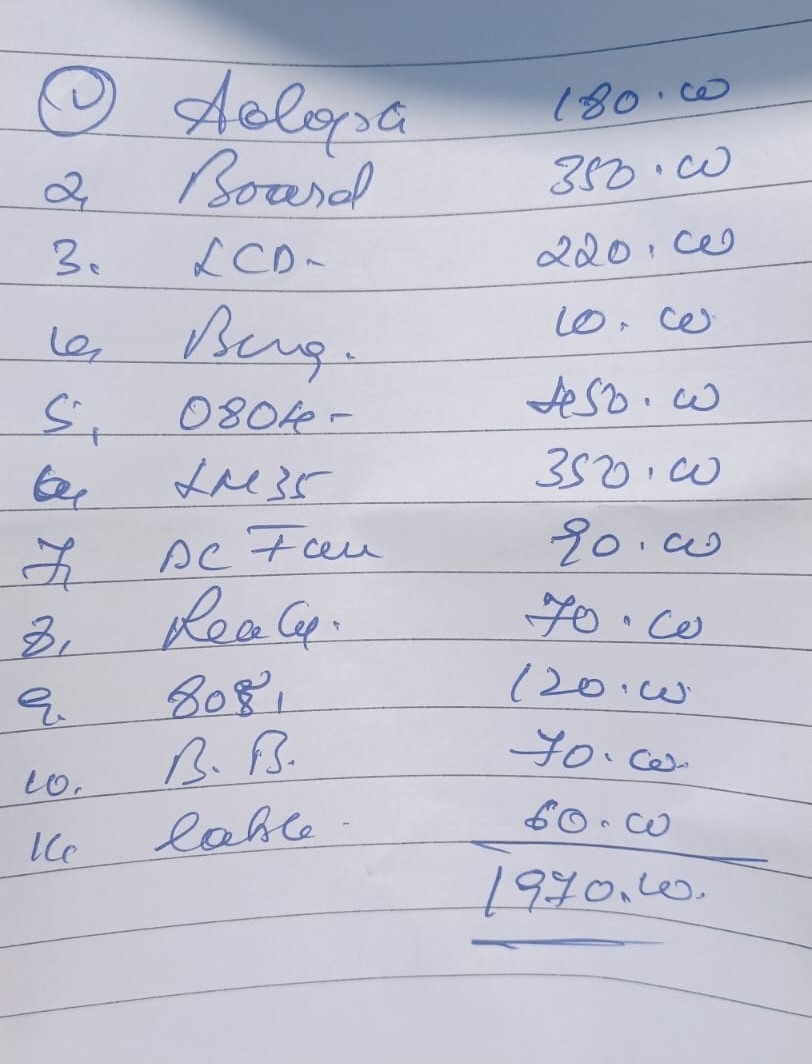 1 180.00
2, Board 350.00
3. LCD- 220.00
4, Berg. 10.00
5, 0804- 450.00
6, LM35 350.00
7, DC Fan 90.00
8, Realy. 70.00
9. 120.00
10. B.B. 70.00
11, Cable 60.00
1970.00.